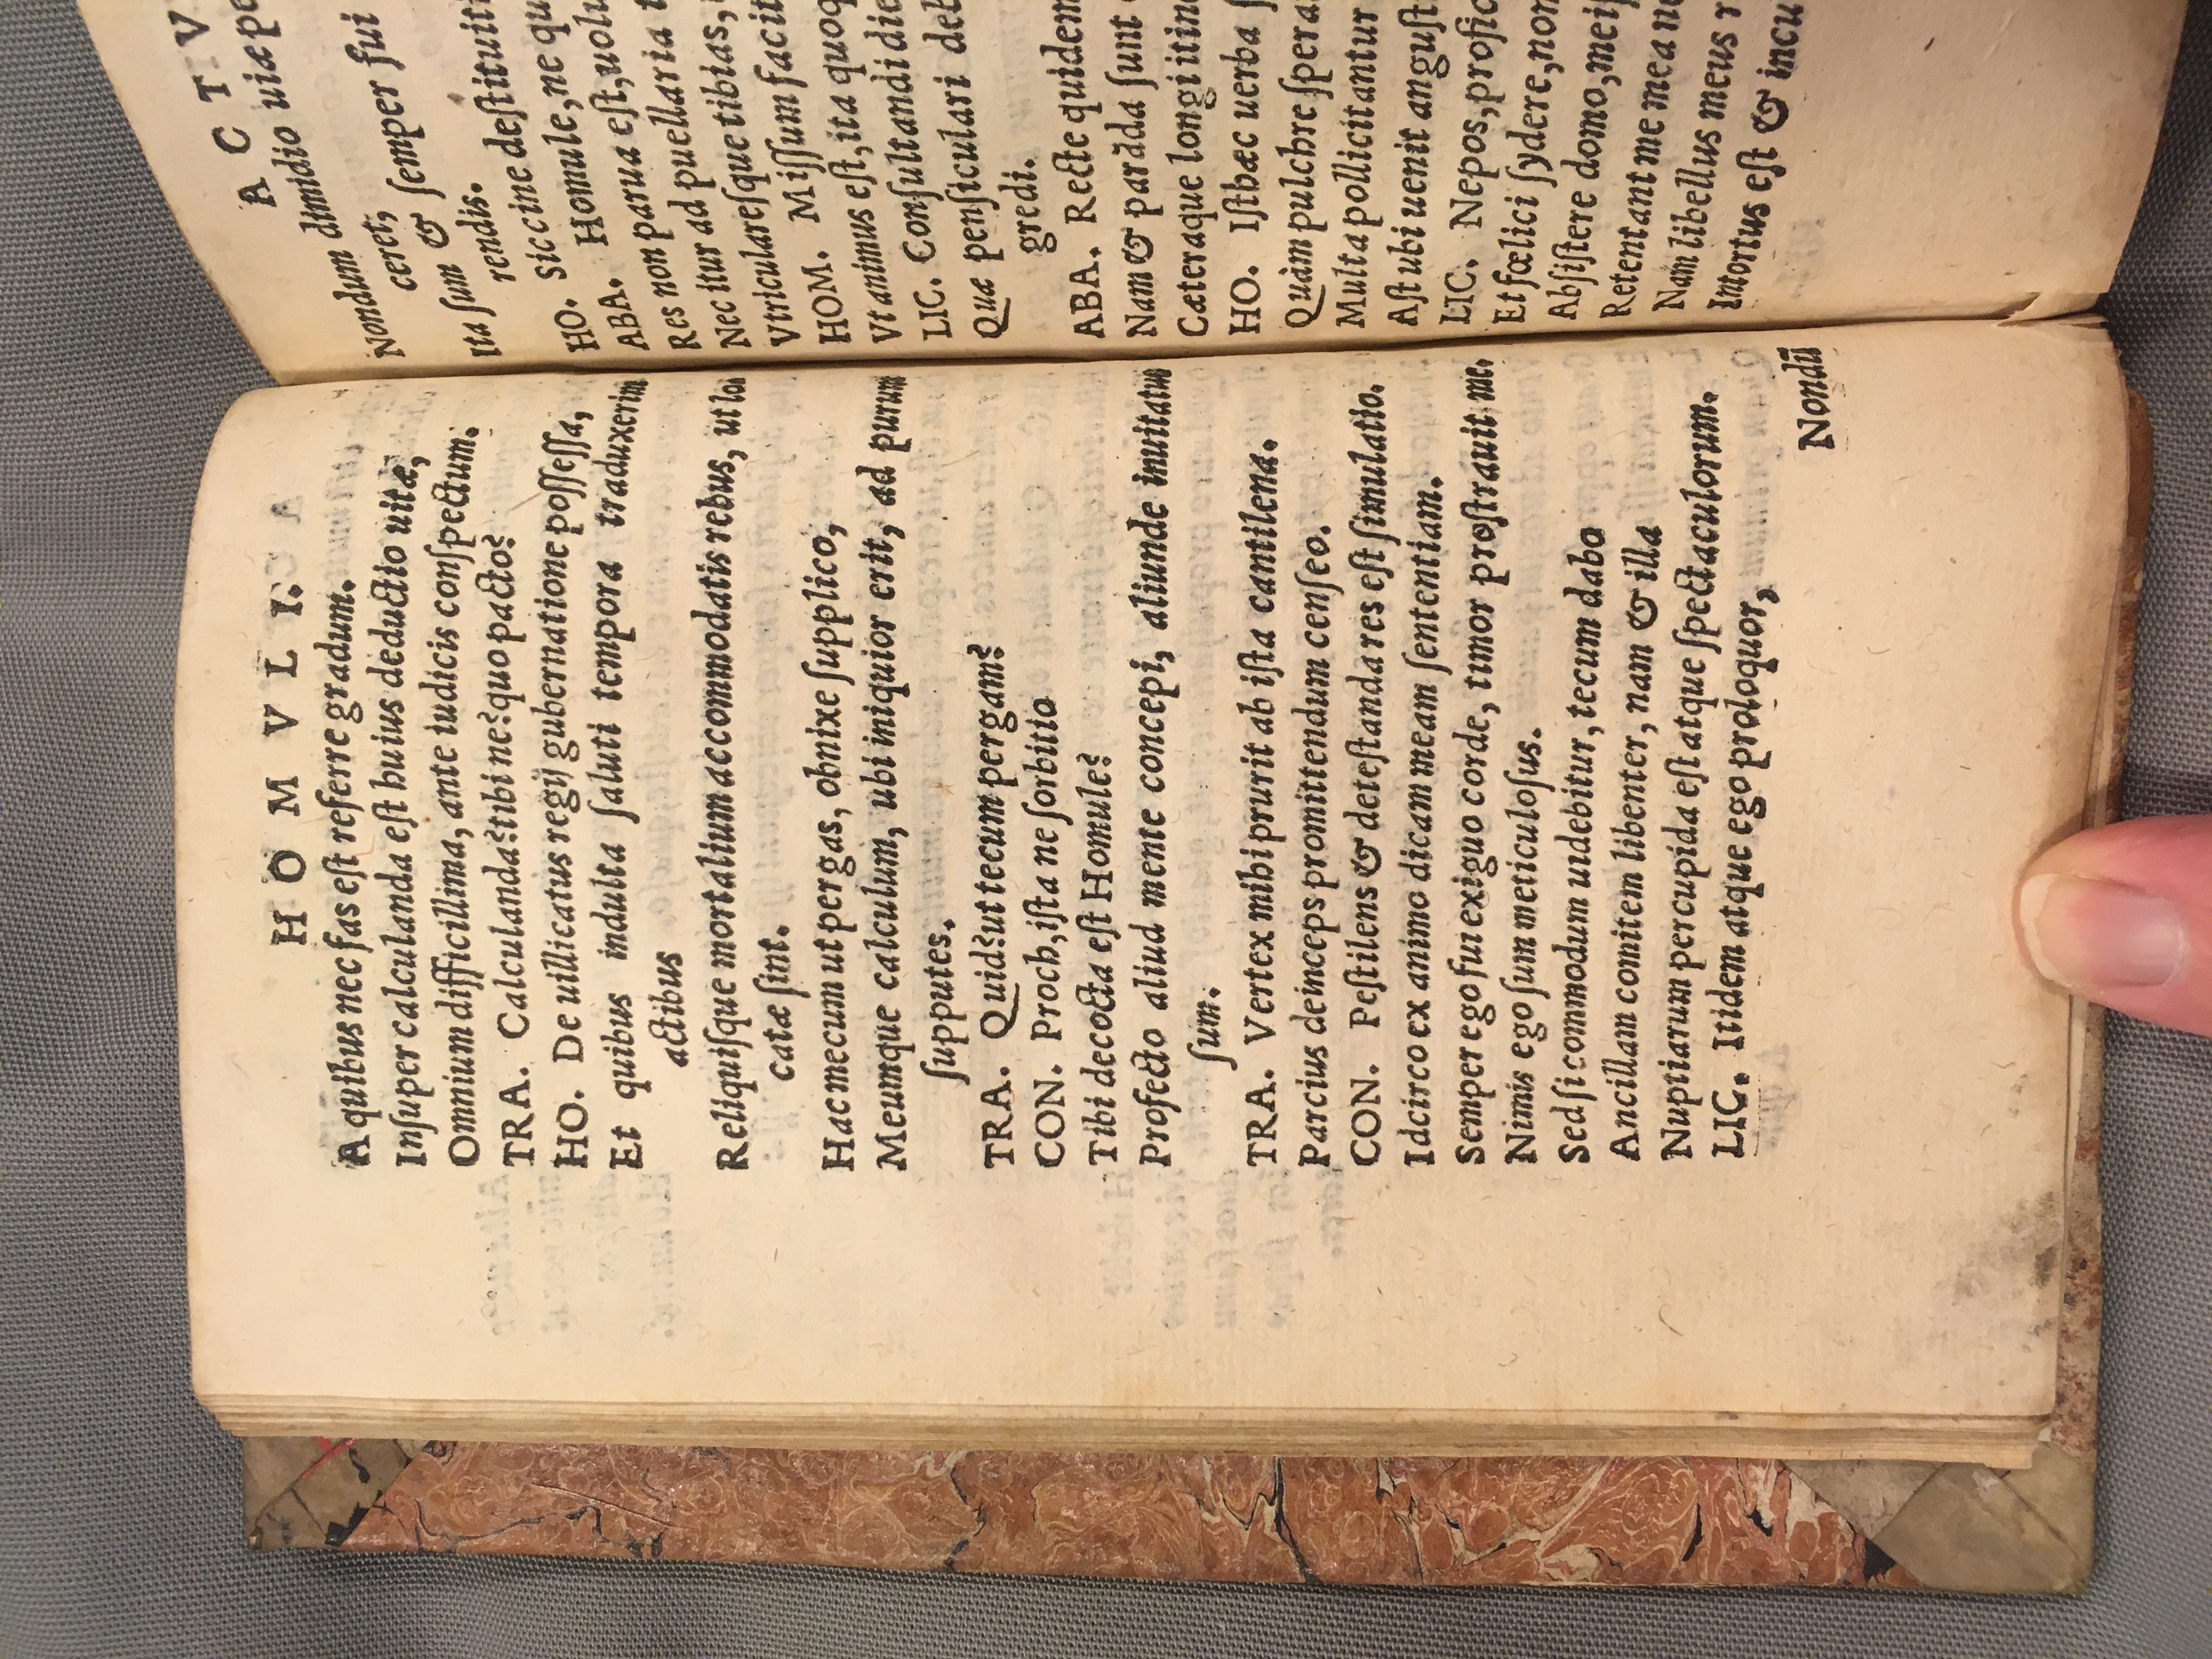 HOMVLI.
A quibus nec fas est referre gradum.
Insuper calculanda est huius deductio uitæ,
Omnium difficillima, ante iudicis conspectum.
TRA. Calculanda? tibi ne? quo pacto?
HO. De uillicatus regij gubernatione possessa,
Et quibus indulta saluti tempora traduxerim
actibus
Reliquisque mortalium accommodatis rebus, ut lo
catæ sint.
Hac mecum ut pergas, obnixe supplico,
Meumque calculum, ubi iniquior erit, ad purum
supputes.
TRA. Quid? ut tecum pergam?
CON. Proch, ista ne sorbitio
Tibi decocta est Homule?
Profecto aliud mente concepi, aliunde inuitatus
sum.
TRA. Vertex mihi prurit ab ista cantilena.
Parcius deinceps promittendum censeo.
CON. Pestilens & detestanda res est simulatio.
Idcirco ex animo dicam meam sententiam.
Semper ego fui exiguo corde, timor prostrauit me.
Nimis ego sum meticulosus.
Sed si commodum uidebitur, tecum dabo
Ancillam comitem libenter, nam & illa
Nuptiarum percupida est atque spectaculorum.
LIC. Itidem atque ego proloquor,
Nondū
ACTV
Nondum dimidio uiæ
ceret,
Ita sum & semper fui
rendis.
HO. Siccine
HO. Homule, ne
ABA. non parua est,
Res non ad puellaria
Nec itur ad tibias,
Vtriculares que
HOM. Missum
Vt animus est, ita
LIC. Consultandi
Quæ pensiculari
gredi.
ABA. Recte quidem
Nam & parāda sunt
Cæteraque longi
HO. Isthæc uerba
Quàm pulchre
Multa pollicitantur
Ast ubi uenit
LIC. Nepos,
Et fœlici sydere, non
Absistere domo,
Retentant me mea
Nam libellus meus
Intortus est &